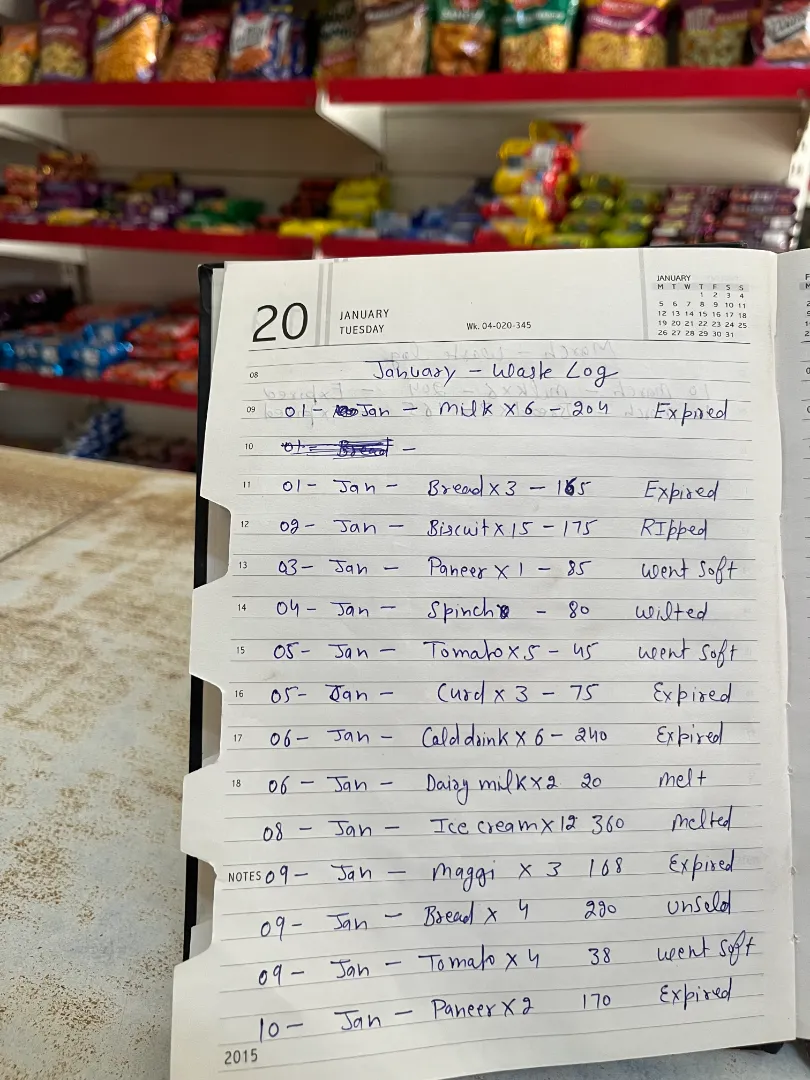 20
JANUARY
TUESDAY
Wk. 04-020-345
JANUARY
M T W T F S S
1 2 3 4
5 6 7 8 9 10 11
12 13 14 15 16 17 18
19 20 21 22 23 24 25
26 27 28 29 30 31
08 January - Waste Log
09 01- Jan - Milk x 6 - 204 Expired
10 01- Bread -
11 01- Jan - Bread x 3 - 165 Expired
12 02- Jan - Biscuit x 15 - 175 RIpped
13 03- Jan - Paneer x 1 - 85 went soft
14 04- Jan - Spinch - 80 wilted
15 05- Jan - Tomato x 5 - 45 went soft
16 05- Jan - Curd x 3 - 75 Expired
17 06- Jan - Cold drink x 6 - 240 Expired
18 06- Jan - Dairy milk x 2 20 melt
08- Jan - Ice cream x 12 360 melted
NOTES 09- Jan - Maggi x 3 168 Expired
09- Jan - Bread x 4 220 unsold
09- Jan - Tomato x 4 38 went soft
10- Jan - Paneer x 2 170 Expired
2015